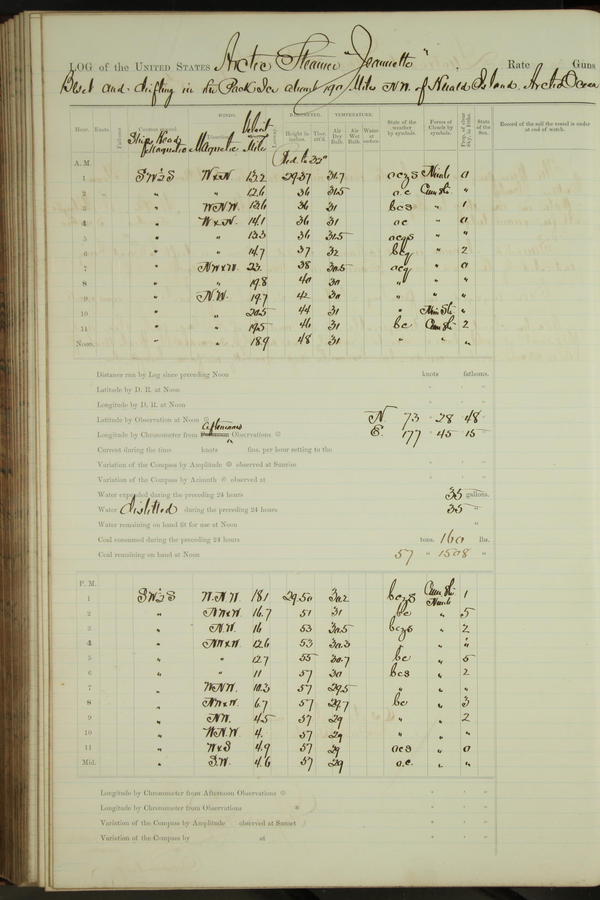 LOG of the UNITED STATES Arctic Steamer "Jeannette" Rate Guns
Beset and drifting in the Pack Ice about 190 Miles N.W. of Herald Island. Arctic Ocean
WINDS. BAROMETER. TEMPERATURE.
Hour. Knots. Height in inches. Air Dry Bulb. Air Wet Bulb. Water at surface. State of the weather by symbols. Forms of Clouds by symbols. State of the Sea. Record of the sail the vessel is under at end of watch.
Ship's Head Magnetic Magnetic Miles
A. M.
1 SW½S WxN. 13.2 29.37 31.7 Nimb 0
2 " " 12.6 36 31.5 o.c. Cum Sti "
3 " WNW. 13.6 36 31 bcs " 1
4 " WxN. 14.1 36 31 oc " 0
5 " " 13.3 36 31.5 ocqs " "
6 " " 14.7 37 32 bcq " 2
7 " NWxW. 23. 38 30.5 ocq " 0
8 " " 19.8 40 30 " " "
9 " N.W. 19.7 42 30 " " "
10 " " 20.5 44 31 "
11 " " 19.5 46 31 bc Cum Sti 2
Noon. " " 18.9 48 31 " " "
Distance run by Log since preceding Noon knots fathoms.
Latitude by D. R. at Noon
Longitude by D. R. at Noon
Latitude by Observation at Noon N. 73 28 48
Longitude by Chronometer from afternoon Observations E. 177 45 15
Current during the time knots fms. per hour setting to the
Variation of the Compass by Amplitude observed at Sunrise
Variation of the Compass by Azimuth observed at
Water expended during the preceding 24 hours 35 gallons.
Water distilled during the preceding 24 hours 35 "
Water remaining on hand fit for use at Noon "
Coal consumed during the preceding 24 hours tons. 160 lbs.
Coal remaining on hand at Noon 57 " 1508 "
P. M.
1 SW½S W.N.W. 18.1 29.50 30.2 bczs Cum Sti Nimb 1
2 " NWxW. 16.7 51 31 bc " 5
3 " N.W. 16 53 30.5 bczs " 2
4 " NWxW 12.6 53 30.3 " " "
5 " " 12.7 55 30.7 bc " 5
6 " " 11 57 30 bcs " 2
7 " WNW. 10.3 57 29.5 " " "
8 " NWxW. 6.7 57 29.7 bc " 3
9 " NW. 4.5 57 29 " " 2
10 " W.N.W. 4. 57 29 " " "
11 " WxS 4.9 57 29 ocs " 0
Mid. " S.W. 4.6 57 29 o.c. " "
Longitude by Chronometer from Afternoon Observations
Longitude by Chronometer from Observations
Variation of the Compass by Amplitude observed at Sunset
Variation of the Compass by at